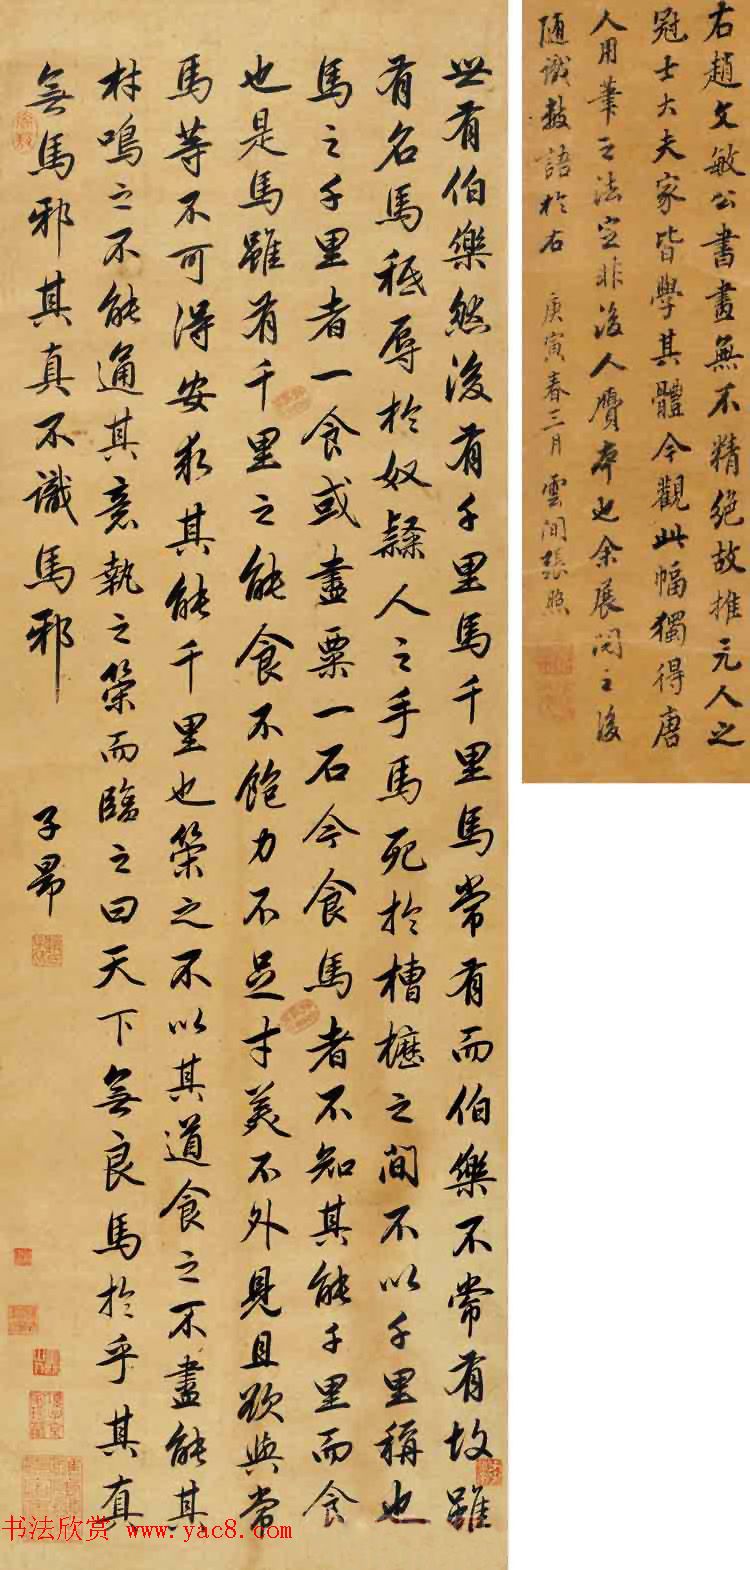 世有伯樂然後有千里馬千里馬常有而伯樂不常有故雖
有名馬秪辱於奴隸人之手馬死於槽櫪之間不以千里稱也
馬之千里者一食或盡粟一石今食馬者不知其能千里而食
也是馬雖有千里之能食不飽力不足才美不外見且欲與常
馬等不可得安求其能千里也策之不以其道食之不盡能其
材鳴之不能通其意執之策而臨之曰天下無良馬於乎其真
無馬邪其真不識馬邪
子昂
右趙文敏公書畫無不精絕故推元人之
冠士大夫家皆學其體今觀此幅獨得唐
人用筆之法定非後人贗本也余展閱之後
隨識數語於右 庚寅春三月 雲間張照
书法欣赏 www.yac8.com